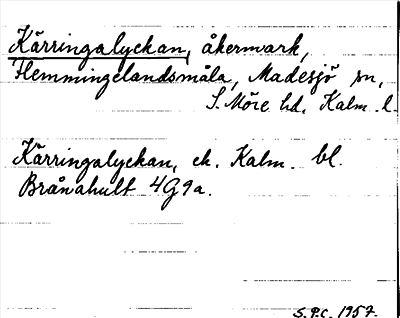 Kärringalyckan, åkermark,
Hemmingelandsmåla, Madesjö sn,
S. Möre hd, Kalm. l.
Kärringalyckan, ek. Kalm. bl.
Brånahult 4G9a.
S.P.C. 1957.